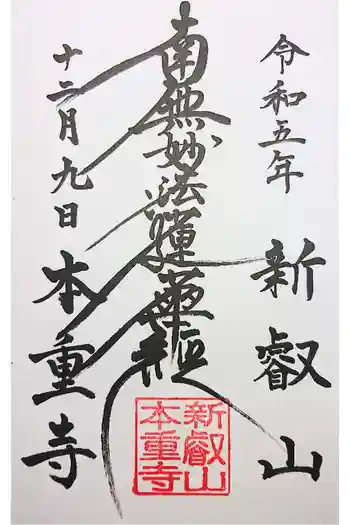 令和五年
新叡山
南無妙法蓮華経
十二月九日
本重寺
新叡山
本重寺